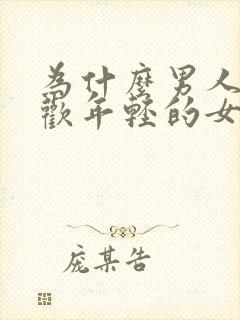 為什麼男人
歡年輕的女
庞某告